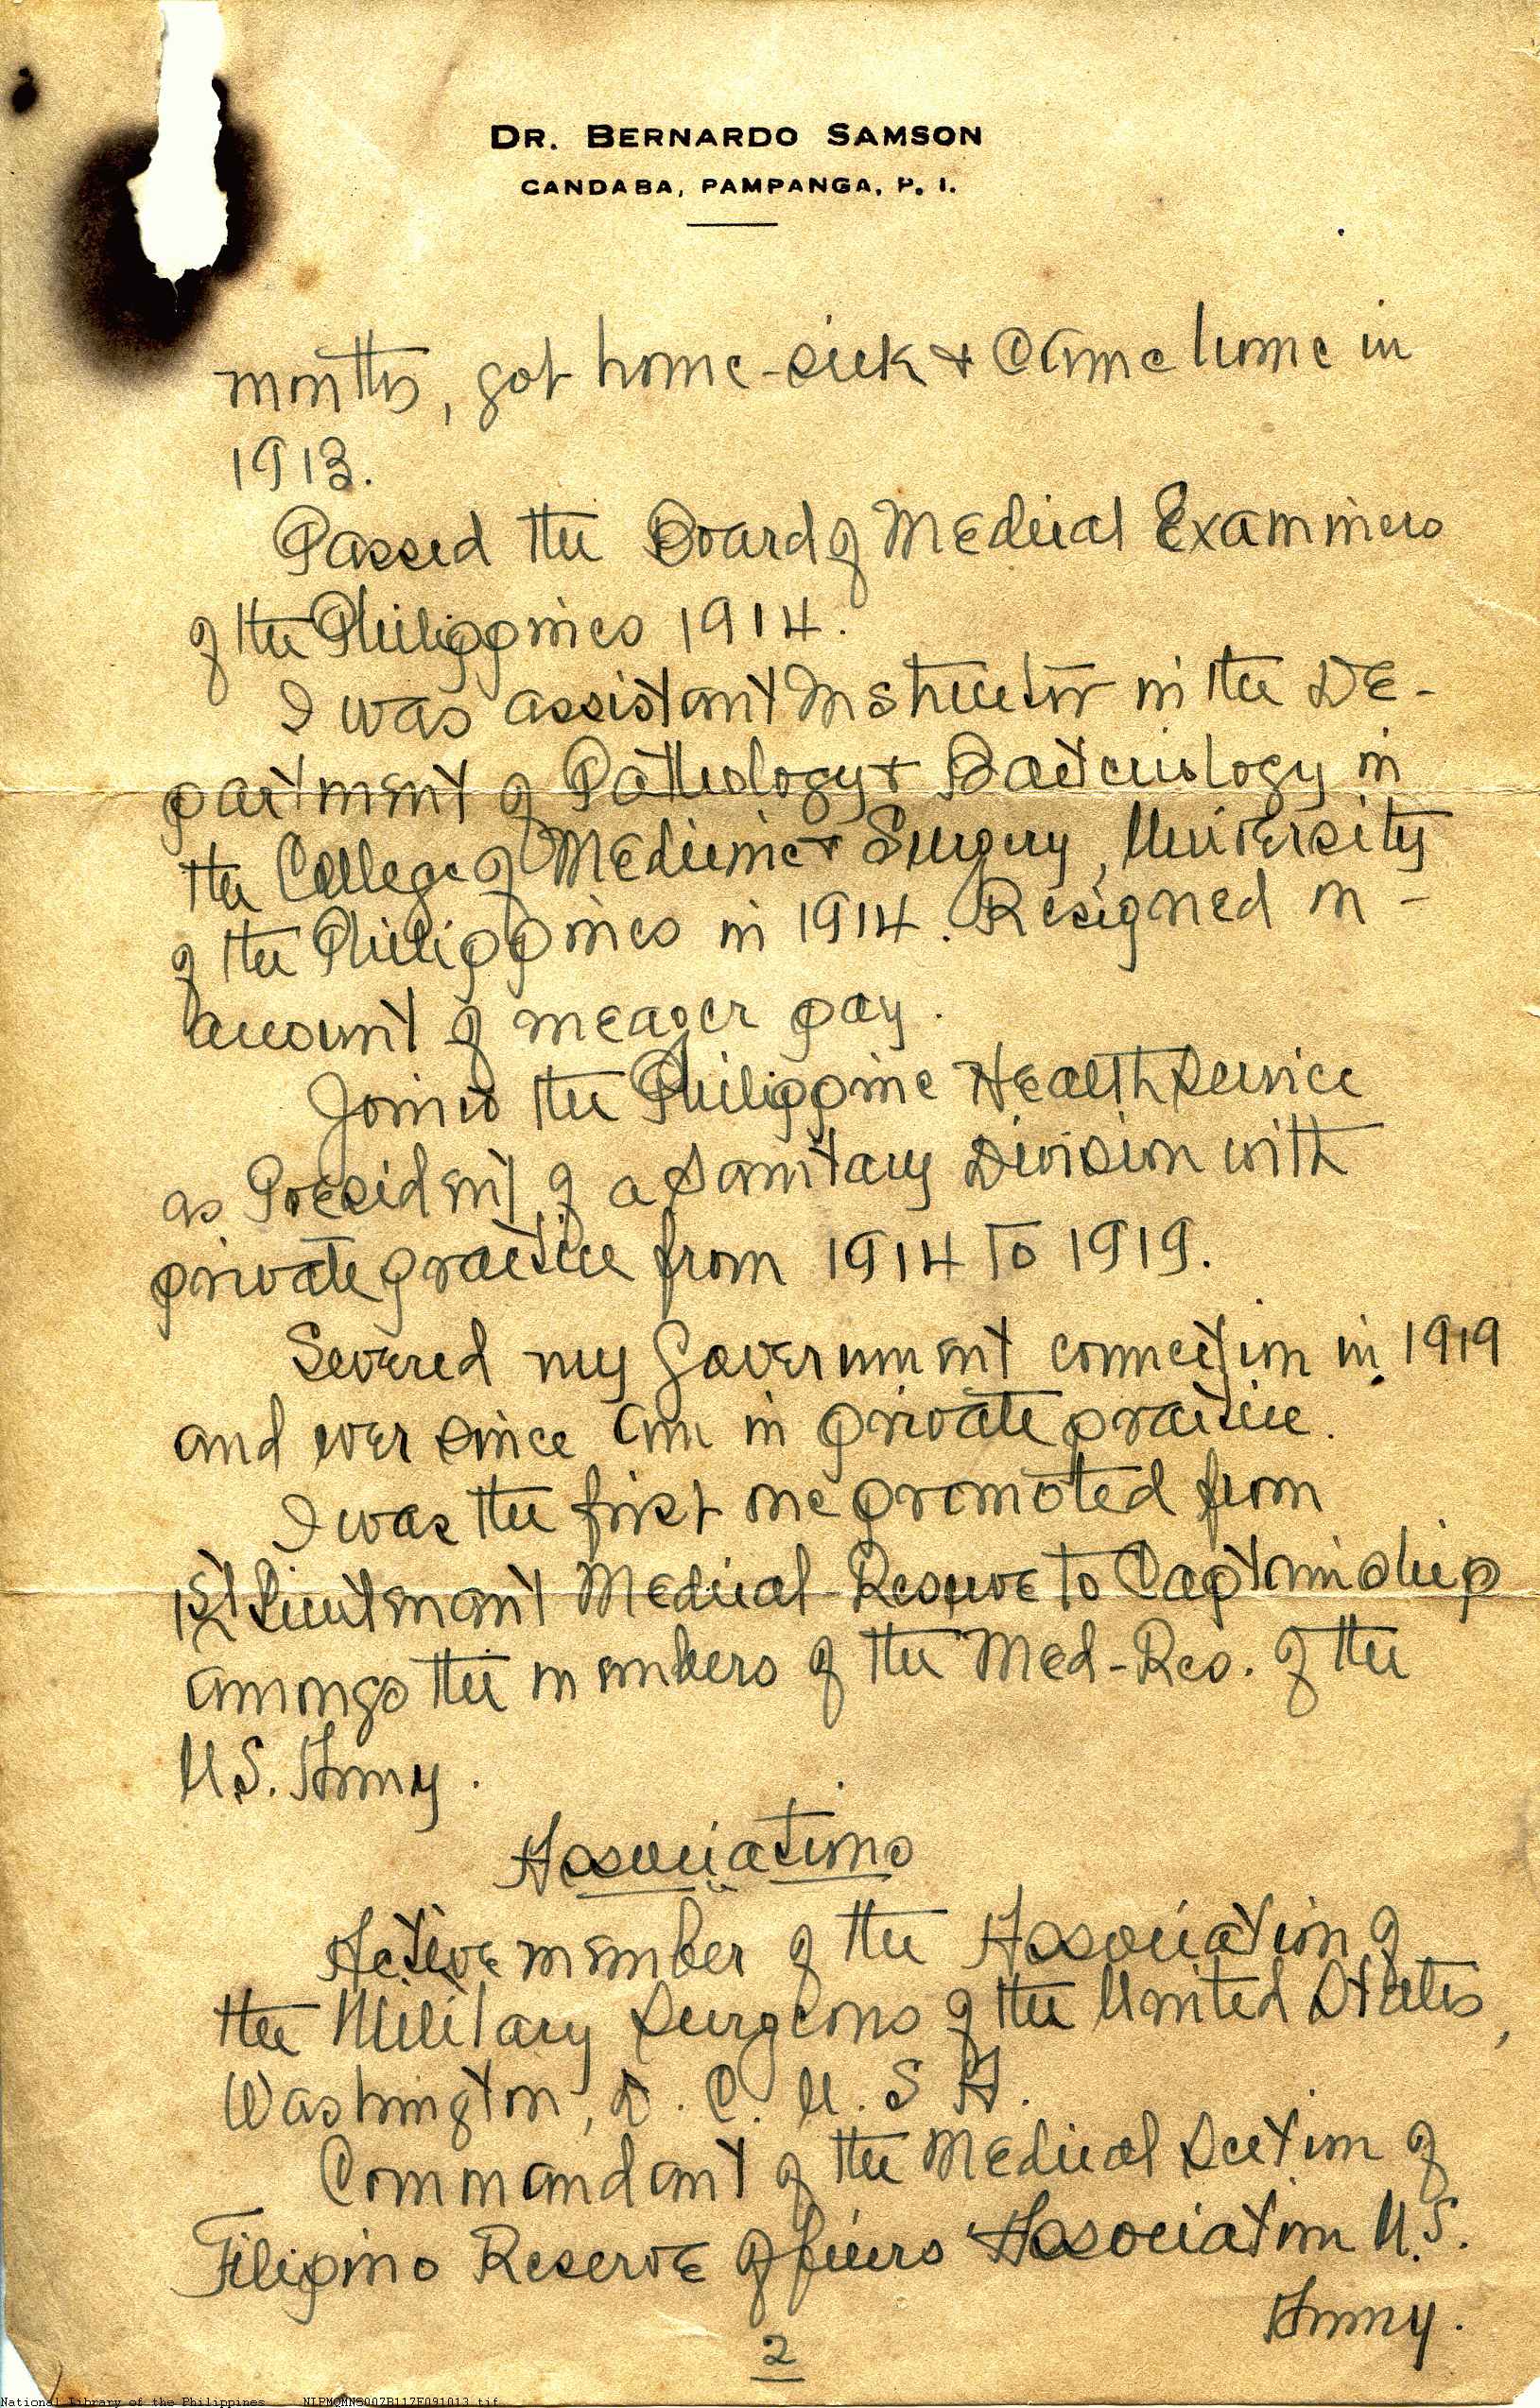 DR. BERNARDO SAMSON
CANDABA, PAMPANGA, P. I.
months, got home-sick & came home in
1913.
Passed the Board of Medical Examiners
of the Philippines 1914.
I was assistant Instructor in the De-
partment of Pathology & Bacteriology in
the College of Medicine & Surgery, University
of the Philippines in 1914. Resigned on -
account of meager pay.
Joined the Philippine Health Service
as President of a Sanitary Division with
private practice from 1914 to 1919.
Severed my Government connection in 1919
and ever since am in private practice.
I was the first one promoted from
1st Lieutenant Medical-Reserve to Captainship
amongs the members of the Med-Res. of the
U.S. Army.
Associations
Active member of the Association of
the Military Surgeons of the United States,
Washington, D. C. U. S A.
Commandant of the Medical Section of
Filipino Reserve Officers Association U.S.
Army.
2
National Library of the Philippines NLPMQMNS007B117F091013.tif